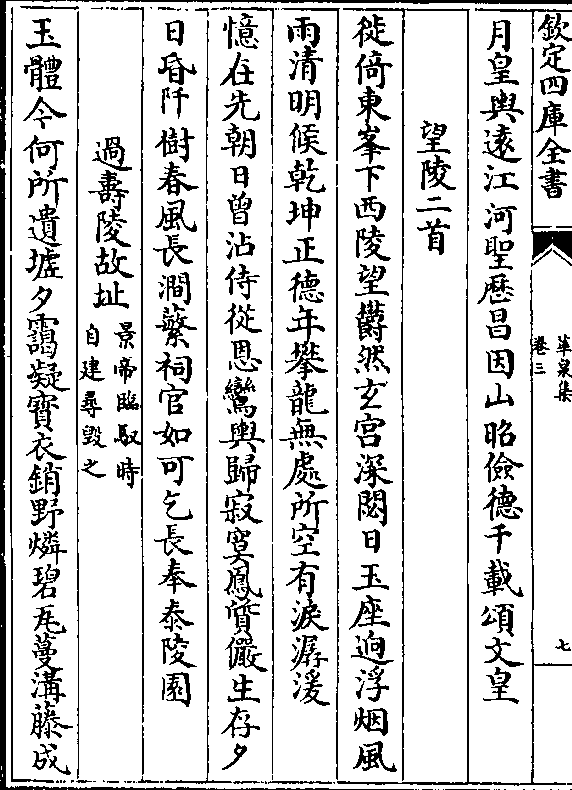 欽定四庫全書
華泉集
卷三
七
月皇輿遠江河聖歴昌因山昭儉德千載頌文皇
望陵二首
徙倚東峯下西陵望欝然玄宫深閟日玉座逈浮烟風
雨清明候乾坤正德年攀龍無處所空有淚潺湲
憶在先朝日曾沾侍從恩鸞輿歸寂寞鳳質儼生存夕
日昏阡樹春風長澗蘩祠官如可乞長奉泰陵園
過壽陵故址
景帝臨馭時
自建尋毁之
玉體今何所遺墟夕靄凝寳衣銷野燐碧瓦蔓溝藤成